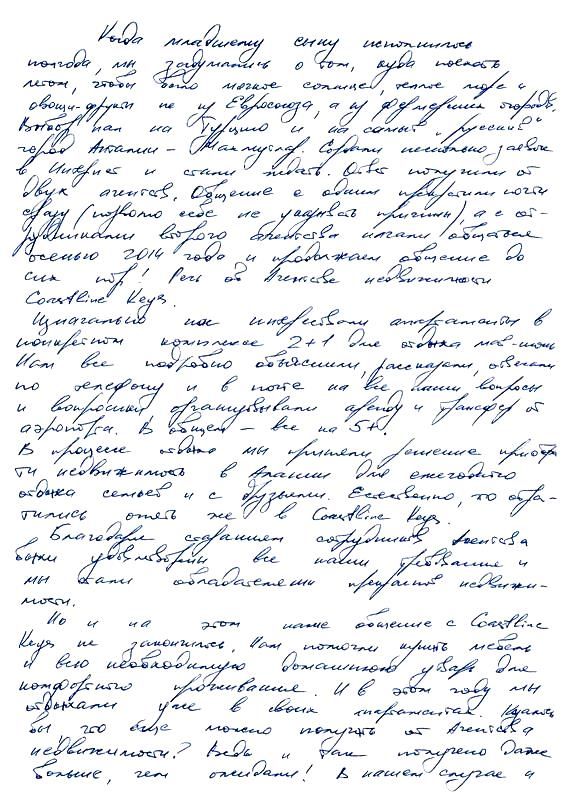 Когда младшему сыну исполнилось
полгода, мы задумались о том, куда поехать
летом, чтобы было мягкое солнце, теплое море и
овощи-фрукты не из Евросоюза, а из фермерских огородов.
Выбор пал на Турцию и на самый "русский"
город Анталии - Махмутлар. Создали несколько заявок
в Интернет и стали ждать. Ответ получили от
двух агентств. Общение с одним прекратили почти
сразу (позволю себе не указывать причины), а с сот-
рудниками второго агентства начали общаться
осенью 2014 года и продолжаем общение до
сих пор! Речь об Агентстве недвижимости
Coastline Keys.
Изначально нас интересовали аппартаменты в
конкретном комплексе 2+1 для отдыха
Нам все подробно объяснили, рассказали, отвечали
по телефону и в почте на все наши вопросы
и вопросики организовывали аренду и трансфер от
аэропорта. В общем - все на 5+.
В процессе отдыха мы приняли решение приобре
ти недвижимость в Алании для ежегодного
отдыха семьей и с друзьями. Естественно, то обра-
тились опять же в Coastline Keys.
Благодаря стараниям сотрудников агентства
были удовлетворены все наши требования и
мы стали обладателями прекрасной недвижи-
мости.
Но и на этом наше общение с Coastline
Keys не закончилось. Нам помогли купить мебель
и всю необходимую домашнюю утварь для
комфортного проживания. И в этом году мы
отдыхали уже в своих аппартаментах. Казалось
бы что еще можно получить от Агентства
недвижимости? Ведь и так получено даже
больше, чем ожидали! В нашем случае и